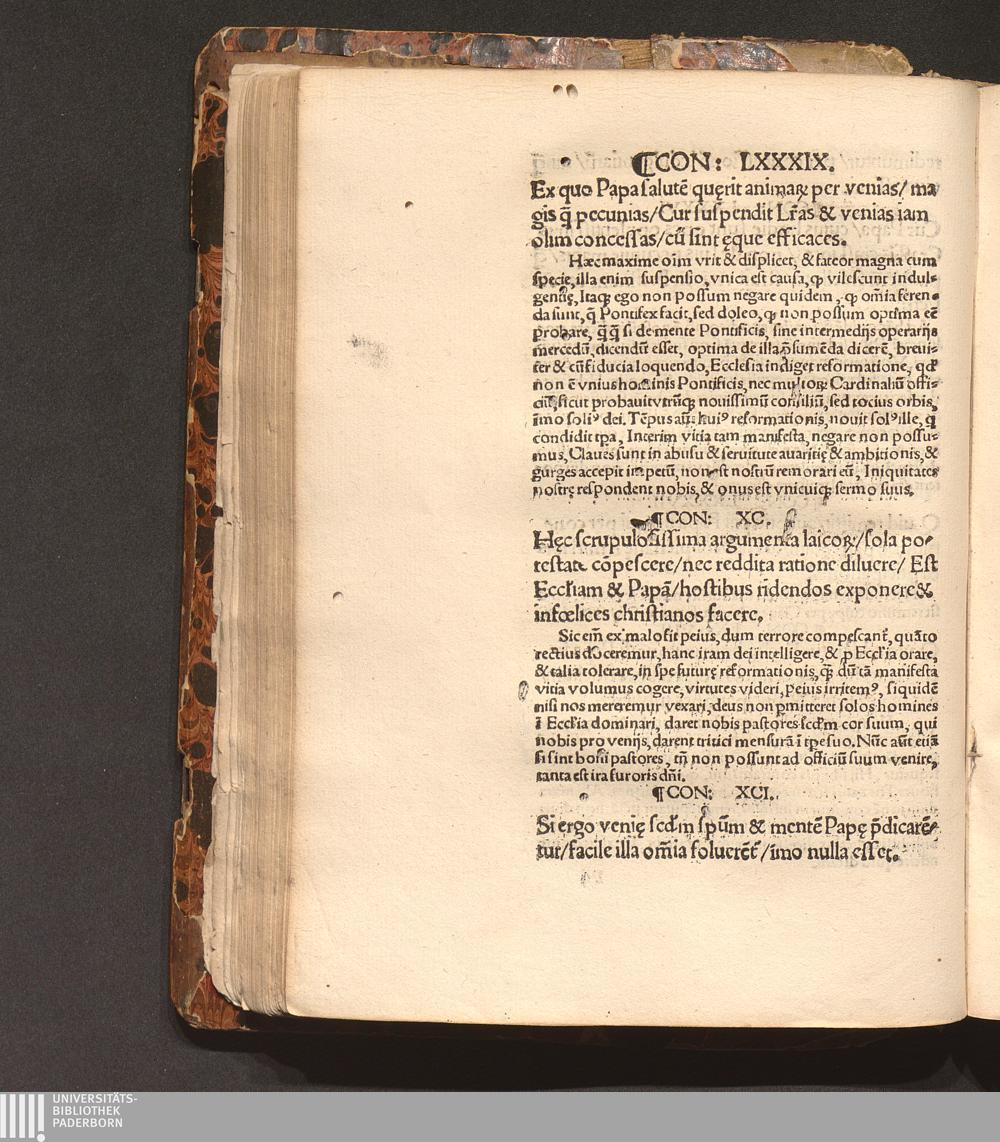 ¶CON: LXXXIX.
Ex quo Papa salutẽ quęrit animaꝝ per venias/ ma
gis q̃ pecunias/Cur suspendit Lr̃as & venias iam
olim concessas/cũ sint ęque efficaces.
Hæc maxime oĩm vrit & displicet, & fateor magna cum
specie, illa enim suspensio, vnica est causa, ꝙ vilescunt indul-
gentię, Itaqꝫ ego non possum negare quidem, ꝙ om̃ia feren-
da sunt, q̃ Pontifex facit, sed doleo, ꝙ non possum optĩma eẽ
probare, q̃q̃ si de mente Pontificis, sine intermedijs operarijs
mercedũ, dicendũ esset, optima de illa p̃sumẽda dicerẽ, breui-
ter & cũ fiducia loquendo, Ecclesia indiget reformatione, qđ
non ẽ vnius hominis Pontificis, nec multoꝝ Cardinaliũ offi-
ciũ, sicut probauit vtrũqꝫ nouissimũ consiliũ, sed tocius orbis,
ĩmo soliꝰ dei. Tẽpus aũt huiꝰ reformationis, nouit solꝰ ille, q
condidit tp̃a, Interim vitia tam manifesta, negare non possu-
mus, Claues sunt in abusu & seruitute auaritię & ambitionis, &
gurges accepit impetũ, non est nostrũ remorari eũ, Iniquitates
nostrę respondent nobis, & onus est vnicuiqꝫ sermo suus.
¶CON: XC.
Hęc scrupulosissima argumenta laicoꝝ/sola po-
testate cõpescere/nec reddita ratione diluere/ Est
Eccl̃iam & Papã/hostibus ridendos exponere &
infœlices christianos facere.
Sic eim̃ ex malo fit peius, dum terrore compescant̃, quãto
rectius doceremur, hanc iram dei intelligere, & ꝓ Eccl̃ia orare,
& talia tolerare, in spe futurę reformationis, qꝫ dũ tã manifesta
vitia volumus cogere, virtutes videri, peius irritemꝰ, siquidẽ
nisi nos mereremur vexari, deus non ꝑmitteret solos homines
ĩ Eccl̃ia dominari, daret nobis pastores scd̃m cor suum, qui
nobis pro venijs, darent tritici mensurã ĩ tp̃e suo. Nũc aũt etiã
si sint boni pastores, tñ non possunt ad officiũ suum venire,
tanta est ira furoris dñi.
¶CON: XCI.
Si ergo venię scd̃m sp̃um & mentẽ Papę p̃dicarẽ-
tur/facile illa om̃ia soluerẽt̃/imo nulla esset.
UNIVERSITÄTS-
BIBLIOTHEK
PADERBORN